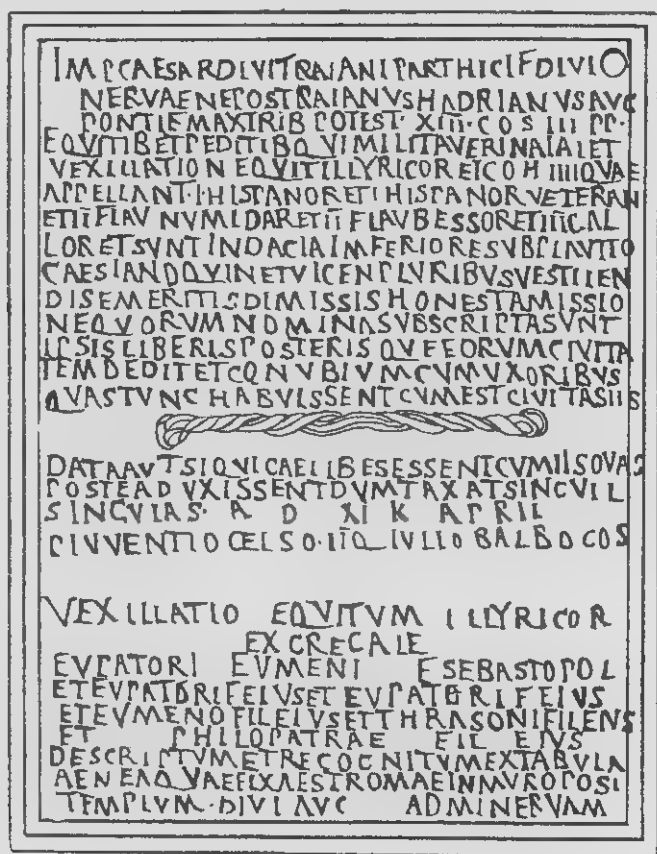 IMPCAESARDIVITRAIANIPARTHICIFDIVIO
NERVAENEPOSTRAIANVSHADRIANVSAVC
PONTIFMAXTRIBPOTEST·XIII·COSIIIPP·
EQVITIBETPEDITIBQVIMILITAVERINAIALET
VEXILLATIONEQVITILLYRICORETCOHIIIIQVAE
APPELLANT·I·HISPANORETIHISPANORVETERAN
ETIIFLAVNVMIDARETIIFLAVBESSORETIIICAL
LORETSVNTINDACIAIMFERIORESVBPLAVTIO
CAESIANOQVINETVICENPLVRIBVSVESTIIEN
DISEMERITISDIMISSISHONESTAMISSIO
NEQVORVMNOMINASVBSCRIPTASVNT
IPSISLIBERISPOSTERISQVEEORVMCIVITA
TEMDEDITETCONVBIVMCVMVXORIBVS
QVASTVNCHABVISSENTCVMESTCIVITASIIS
DATAAVTSIQVICAELIBESESSENTCVMIISQVAS
POSTEADVXISSENTDVMTAXATSINCVIL
SINCVLAS· A D XI K APRIL
PIVVENTIOCELSO·IIQIVLIOBALBOCOS
VEXILLATIO EQVITVM ILLYRICOR
EXCRECALE
EVPATORI EVMENI F SEBASTOPOL
ETEVPATORIFEIVSETEVPATORIFEIVS
ETEVMENOFILEIVSETTHRASONIFILEIVS
ET PHILOPATRAE FIL EIVS
DESCRIPTVMETRECOCNITVMEXTABVLA
AENEAQVAEFIXAESTROMAEINMVROPOSI
TEMPLVM·DIVIAVC ADMINERVAM